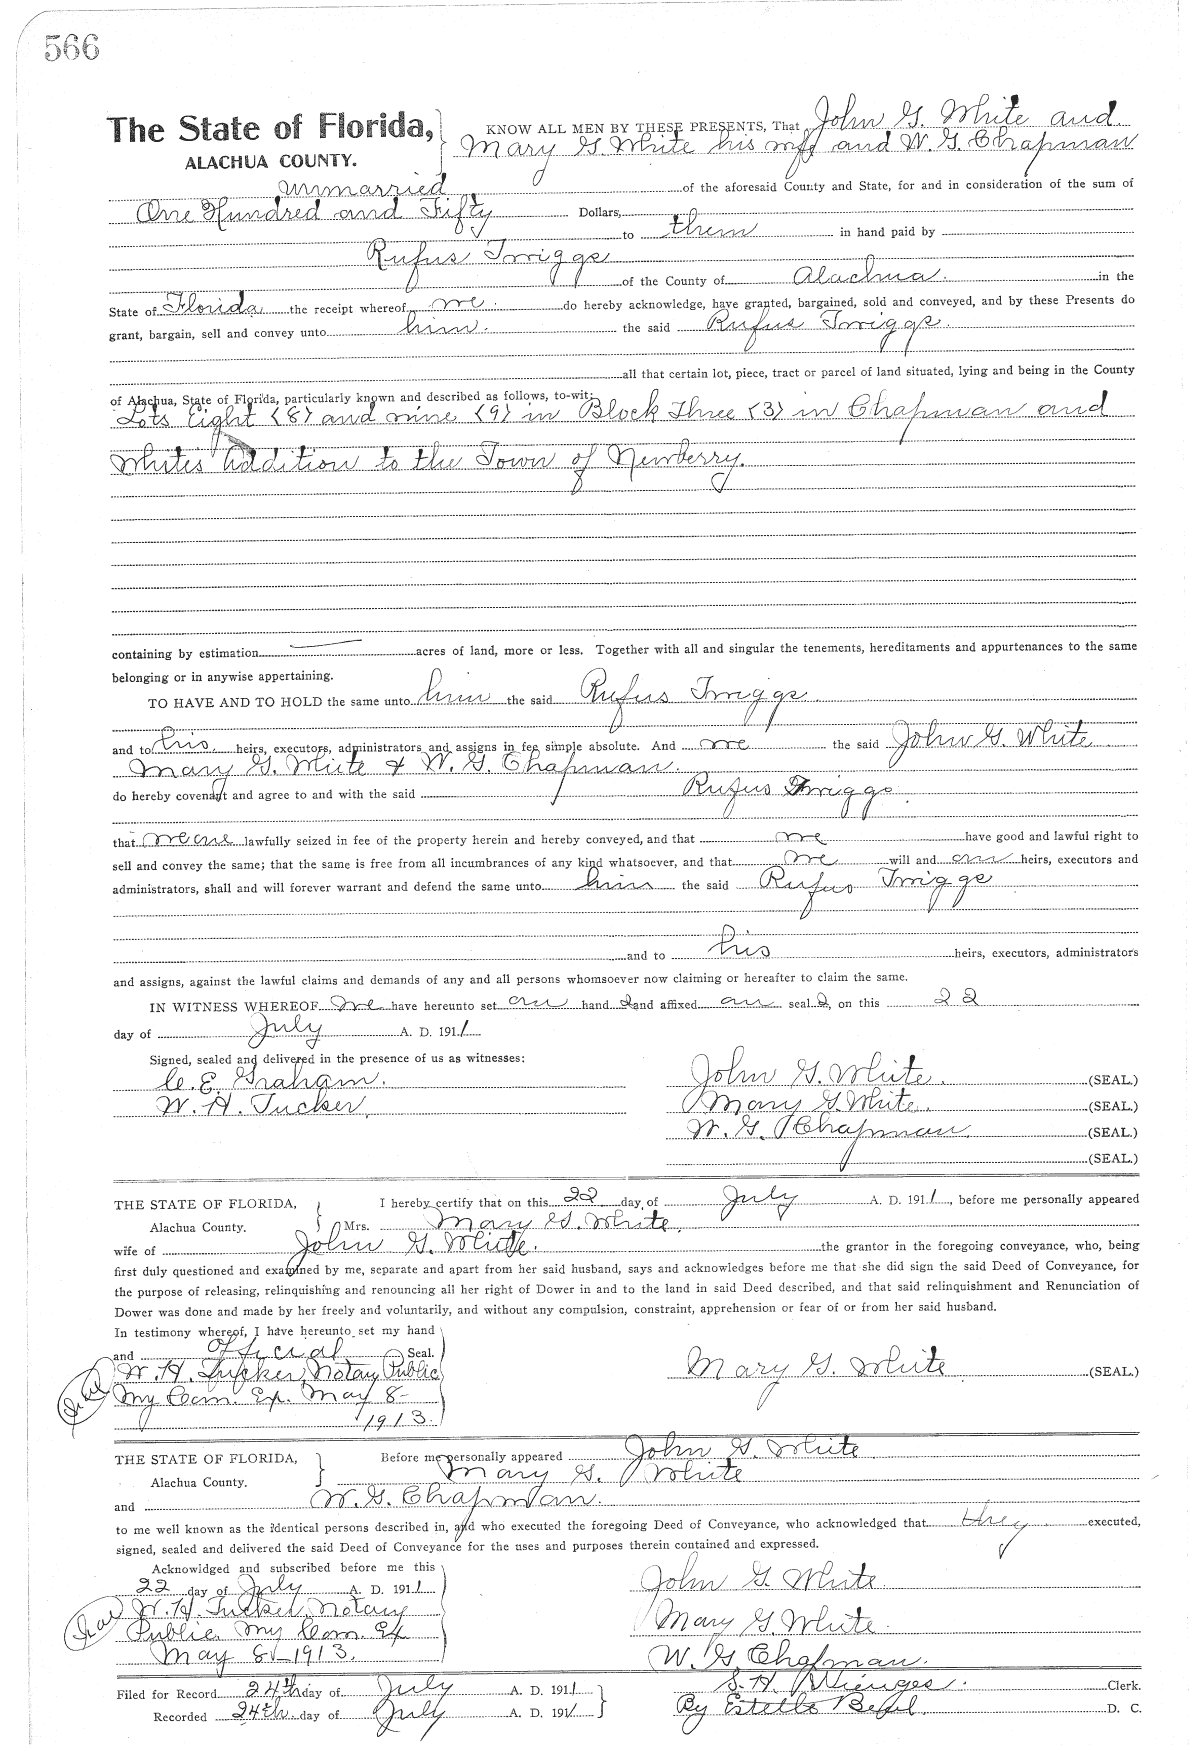 566
The State of Florida, KNOW ALL MEN BY THESE PRESENTS, That John G. White and
ALACHUA COUNTY. Mary G. White his wife and W. G. Chapman
unmarried of the aforesaid County and State, for and in consideration of the sum of
One Hundred and Fifty Dollars,
to them in hand paid by
Rufus Twiggs
of the County of Alachua. in the
State of Florida the receipt whereof we do hereby acknowledge, have granted, bargained, sold and conveyed, and by these Presents do
grant, bargain, sell and convey unto him. the said Rufus Twiggs.
all that certain lot, piece, tract or parcel of land situated, lying and being in the County
of Alachua, State of Florida, particularly known and described as follows, to-wit:
Lots Eight (8) and nine (9) in Block Three (3) in Chapman and
Whites Addition to the Town of Newberry.
containing by estimation acres of land, more or less. Together with all and singular the tenements, hereditaments and appurtenances to the same
belonging or in anywise appertaining.
TO HAVE AND TO HOLD the same unto him the said Rufus Twiggs.
and to his heirs, executors, administrators and assigns in fee simple absolute. And we the said John G. White
Mary G. White & W. G. Chapman.
do hereby covenant and agree to and with the said Rufus Twiggs.
that we are lawfully seized in fee of the property herein and hereby conveyed, and that we have good and lawful right to
sell and convey the same; that the same is free from all incumbrances of any kind whatsoever, and that we will and our heirs, executors and
administrators, shall and will forever warrant and defend the same unto him the said Rufus Twiggs
and to his heirs, executors, administrators
and assigns, against the lawful claims and demands of any and all persons whomsoever now claiming or hereafter to claim the same.
IN WITNESS WHEREOF We have hereunto set our hand s and affixed our seal s, on this 22
day of July A. D. 1911
Signed, sealed and delivered in the presence of us as witnesses:
C. E. Graham. John G. White. (SEAL.)
W. H. Tucker. Mary G. White. (SEAL.)
W. G. Chapman. (SEAL.)
(SEAL.)
THE STATE OF FLORIDA, I hereby certify that on this 22 day of July A. D. 1911, before me personally appeared
Alachua County. Mrs. Mary G. White.
wife of John G. White. the grantor in the foregoing conveyance, who, being
first duly questioned and examined by me, separate and apart from her said husband, says and acknowledges before me that she did sign the said Deed of Conveyance, for
the purpose of releasing, relinquishing and renouncing all her right of Dower in and to the land in said Deed described, and that said relinquishment and Renunciation of
Dower was done and made by her freely and voluntarily, and without any compulsion, constraint, apprehension or fear of or from her said husband.
In testimony whereof, I have hereunto set my hand
and official Seal.
W. H. Tucker, Notary Public Mary G. White (SEAL.)
Seal My Com. Ex. May 8-
1913.
THE STATE OF FLORIDA, Before me personally appeared John G. White
Alachua County. Mary G. White
and W. G. Chapman.
to me well known as the identical persons described in, and who executed the foregoing Deed of Conveyance, who acknowledged that they executed,
signed, sealed and delivered the said Deed of Conveyance for the uses and purposes therein contained and expressed.
Acknowldged and subscribed before me this
22 day of July A. D. 1911 John G. White
Seal W. H. Tucker, Notary
Public. My Com. Ex Mary G. White.
May 8-1913. W. G Chapman.
Filed for Record 24th day of July A. D. 1911 S. H. Wienges. Clerk.
Recorded 24th day of July A. D. 1911 By Estelle D. C.